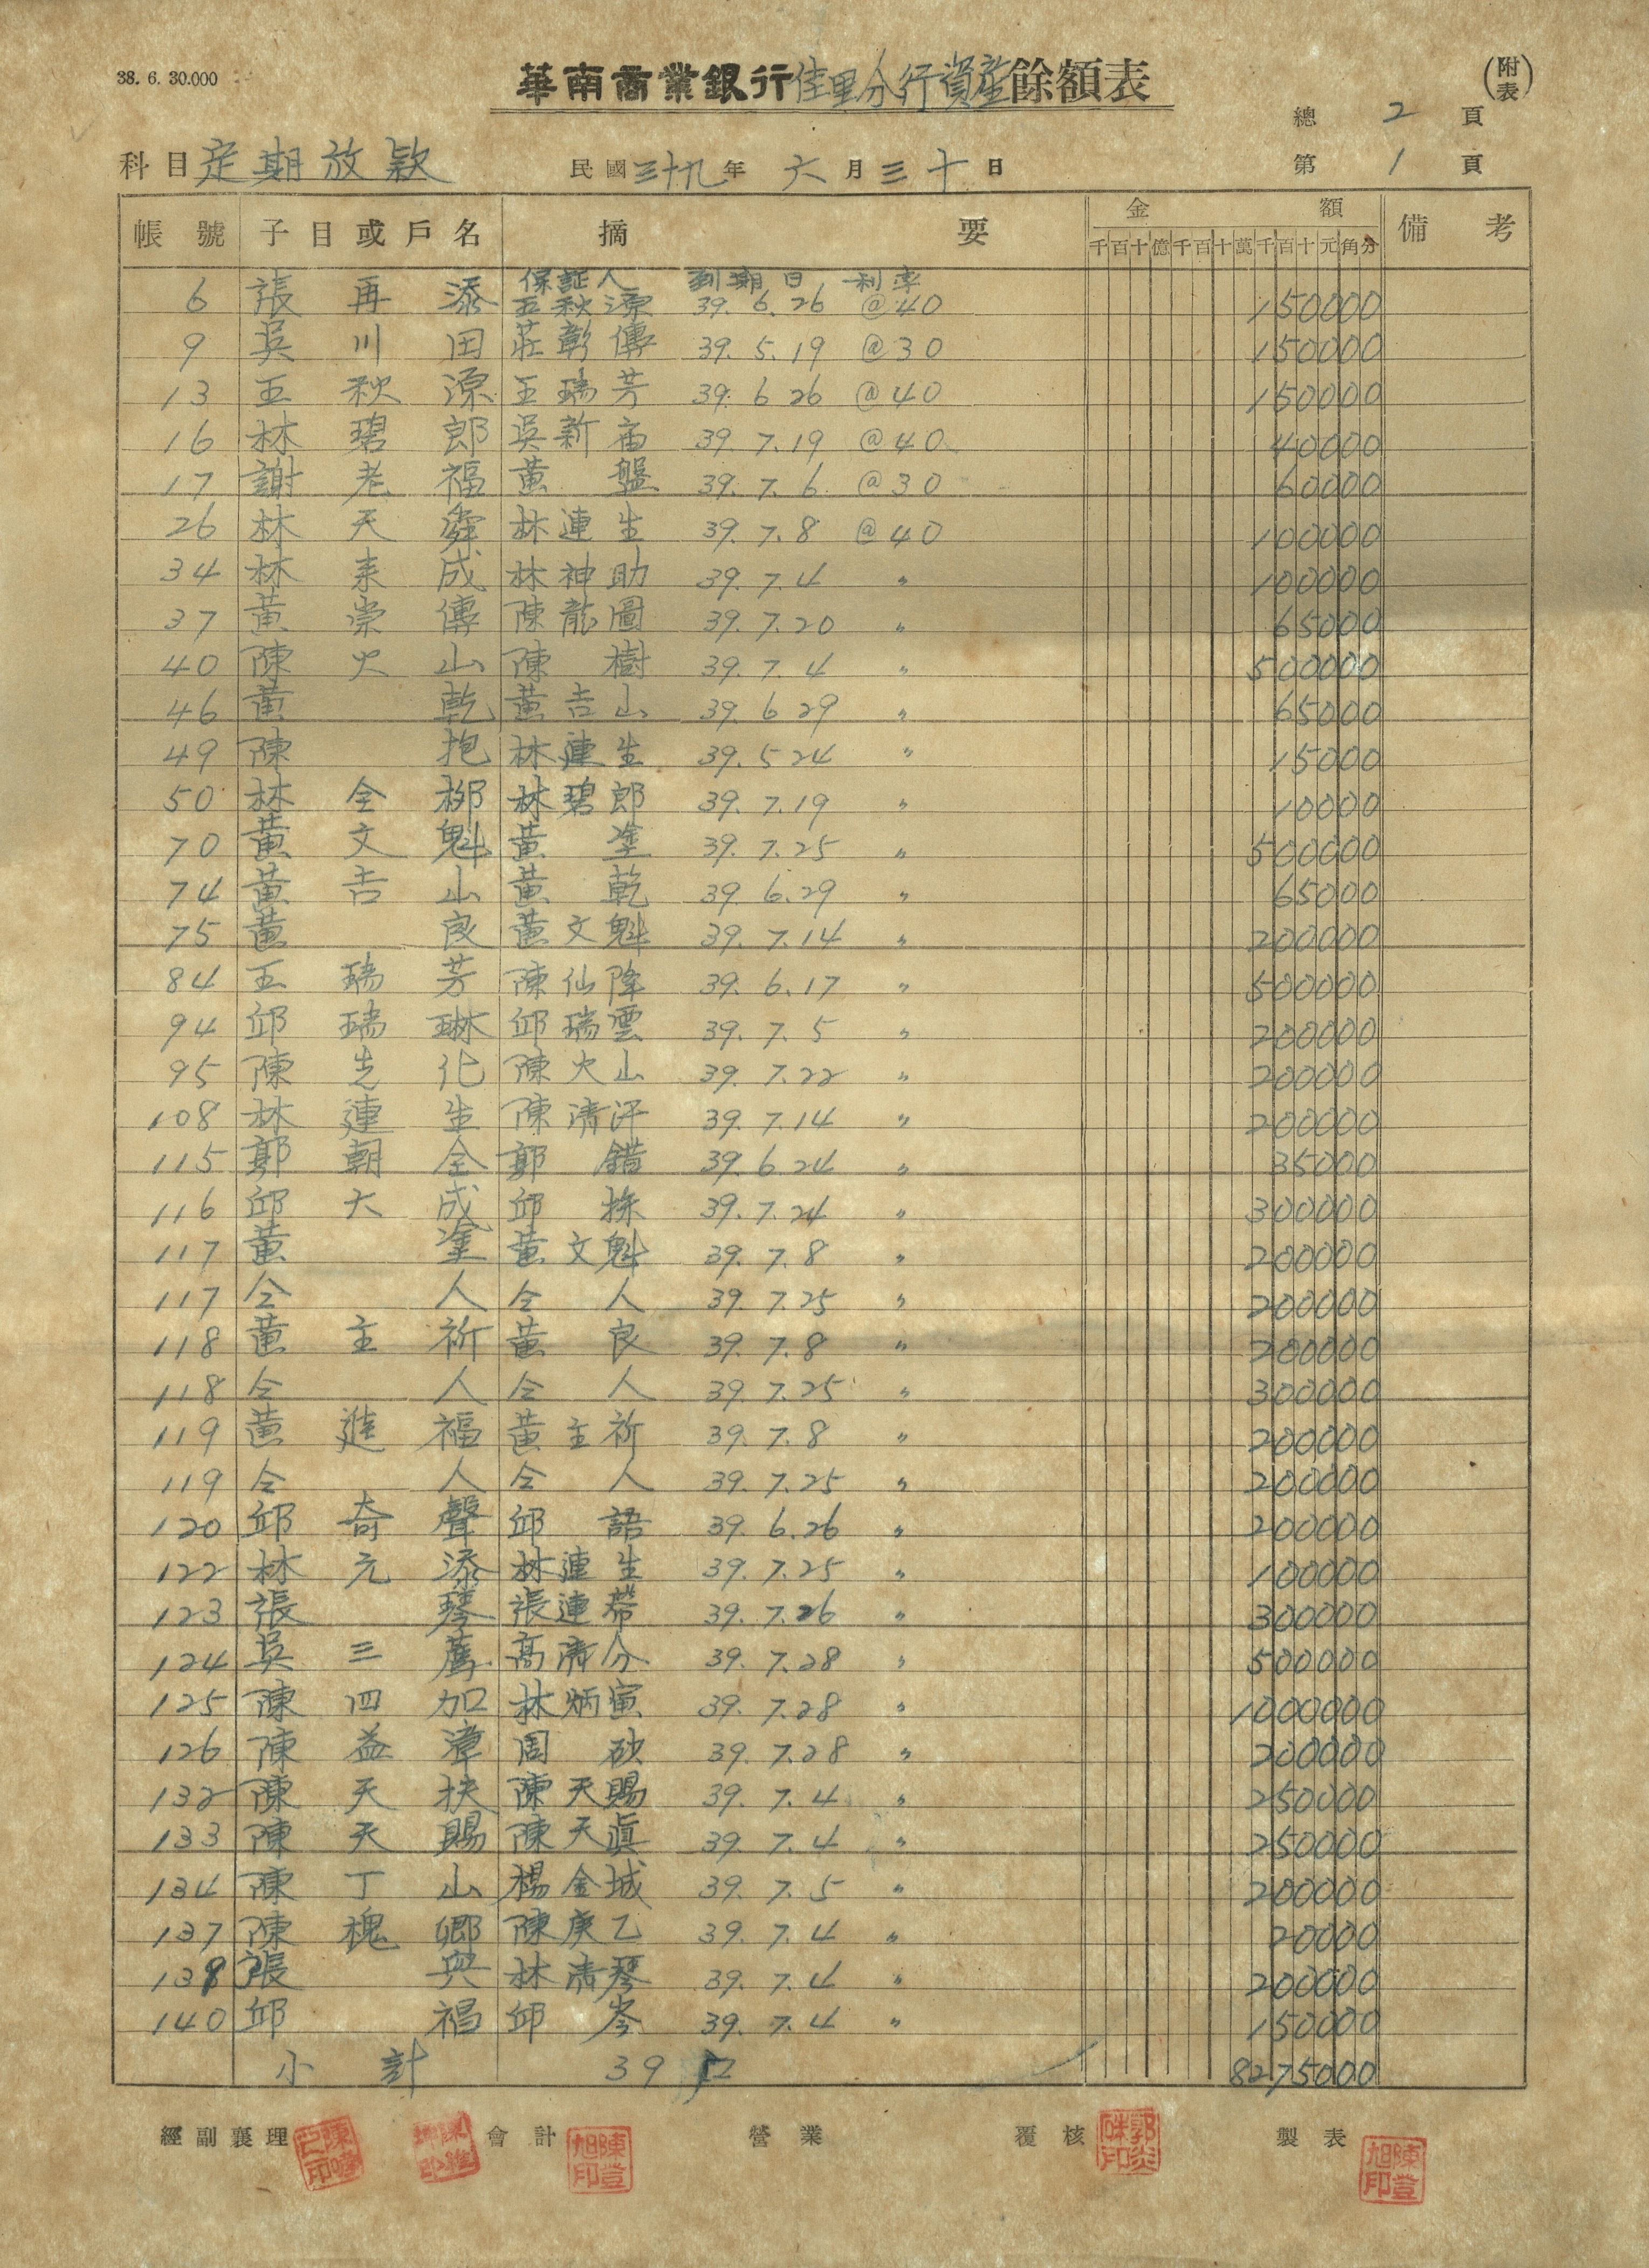 38. 6. 30.000
華南商業銀行佳里分行資產餘額表
(附表)
總 2 頁
科目 定期放款 民國三十九年 六月三十日 第 1 頁
帳號 子目或戶名 摘要 金額 備考
千百十億千百十萬千百十元角分
保証人 到期日 利率
6 張再添 王秋源 39. 6. 26 @40 150000
9 吳川田 莊彰傳 39. 5. 19 @30 150000
13 王秋源 王瑞芳 39. 6 26 @40 150000
16 林碧郎 吳新 39. 7. 19 @40 40000
17 謝老福 黃盤 39. 7. 6 @30 60000
26 林天 林連生 39. 7. 8 @40 100000
34 林来成 林神助 39. 7. 4 〃 100000
37 黃崇傳 陳龍圖 39. 7. 20 〃 65000
40 陳火山 陳樹 39. 7. 4 〃 500000
46 黃乾 黃吉山 39. 6 29 〃 65000
49 陳抱 林連生 39. 5 24 〃 15000
50 林全 林碧郎 39. 7. 19 〃 10000
70 黃文魁 黃塗 39. 7. 25 〃 500000
74 黃吉山 黃乾 39 6. 29 〃 65000
75 黃良 黃文魁 39. 7. 14 〃 200000
84 王瑞芳 陳仙降 39. 6. 17 〃 500000
94 邱瑞琳 邱瑞雲 39. 7. 5 〃 200000
95 陳先化 陳火山 39. 7. 22 〃 200000
108 林連生 陳清汗 39. 7. 14 〃 200000
115 郭朝全 郭錯 39. 6. 24 〃 35000
116 邱大成 邱 39. 7. 24 〃 300000
117 黃塗 黃文魁 39. 7. 8 〃 200000
117 仝人 仝人 39. 7. 25 〃 200000
118 黃主祈 黃良 39. 7. 8 〃 200000
118 仝人 仝人 39. 7. 25 〃 300000
119 黃進福 黃主祈 39. 7. 8 〃 200000
119 仝人 仝人 39. 7. 25 〃 200000
120 邱奇聲 邱語 39. 6. 26 〃 200000
122 林元添 林連生 39. 7. 25 〃 100000
123 張琴 張連 39. 7. 26 〃 300000
124 吳三 高清分 39. 7. 28 〃 500000
125 陳四加 林炳寅 39. 7. 28 〃 1000000
126 陳益漳 周砍 39. 7. 28 〃 200000
132 陳天扶 陳天賜 39. 7. 4 〃 250000
133 陳天賜 陳天真 39. 7. 4 〃 250000
134 陳丁山 楊金城 39. 7. 5 〃 200000
137 陳槐鄉 陳庚乙 39. 7. 4 〃 20000
138 張與 林清琴 39. 7. 4 〃 200000
140 邱福 邱岑 39. 7. 4 〃 150000
小計 39口 8275000
經副襄理 會計 營業 覆核 製表
陳登旭印 陳登旭印